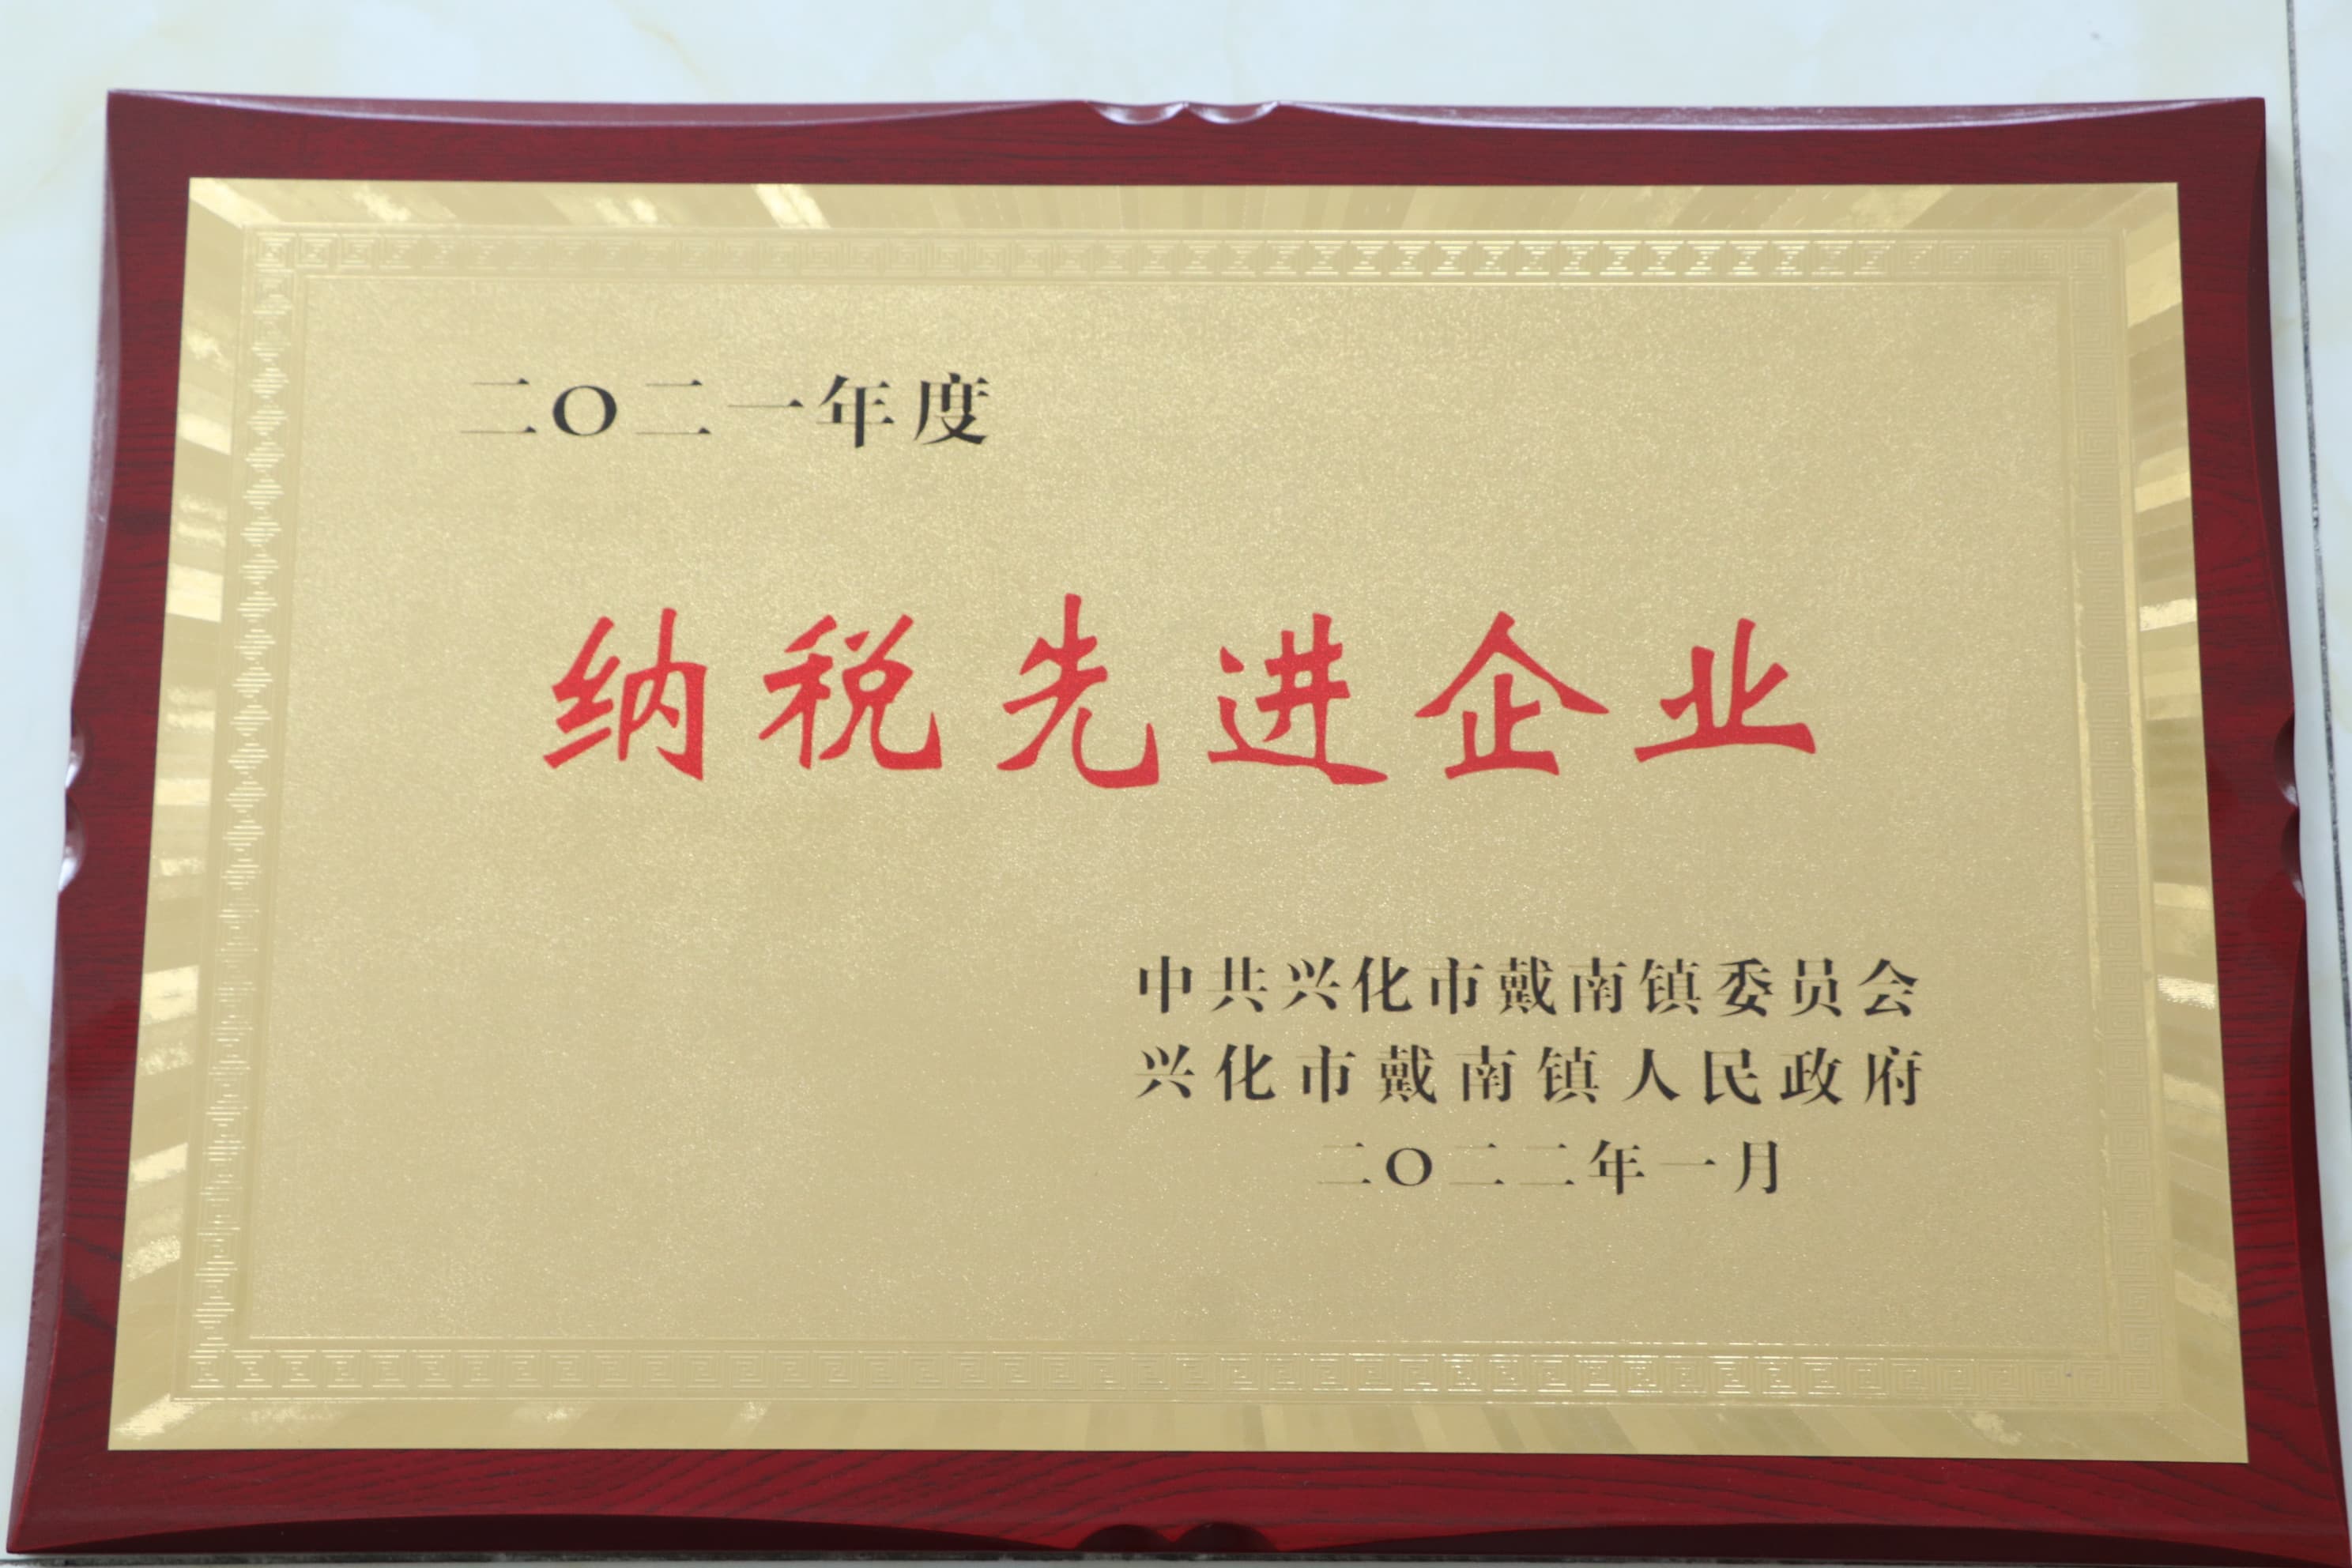 二〇二一年度
纳税先进企业
中共兴化市戴南镇委员会
兴化市戴南镇人民政府
二〇二二年一月